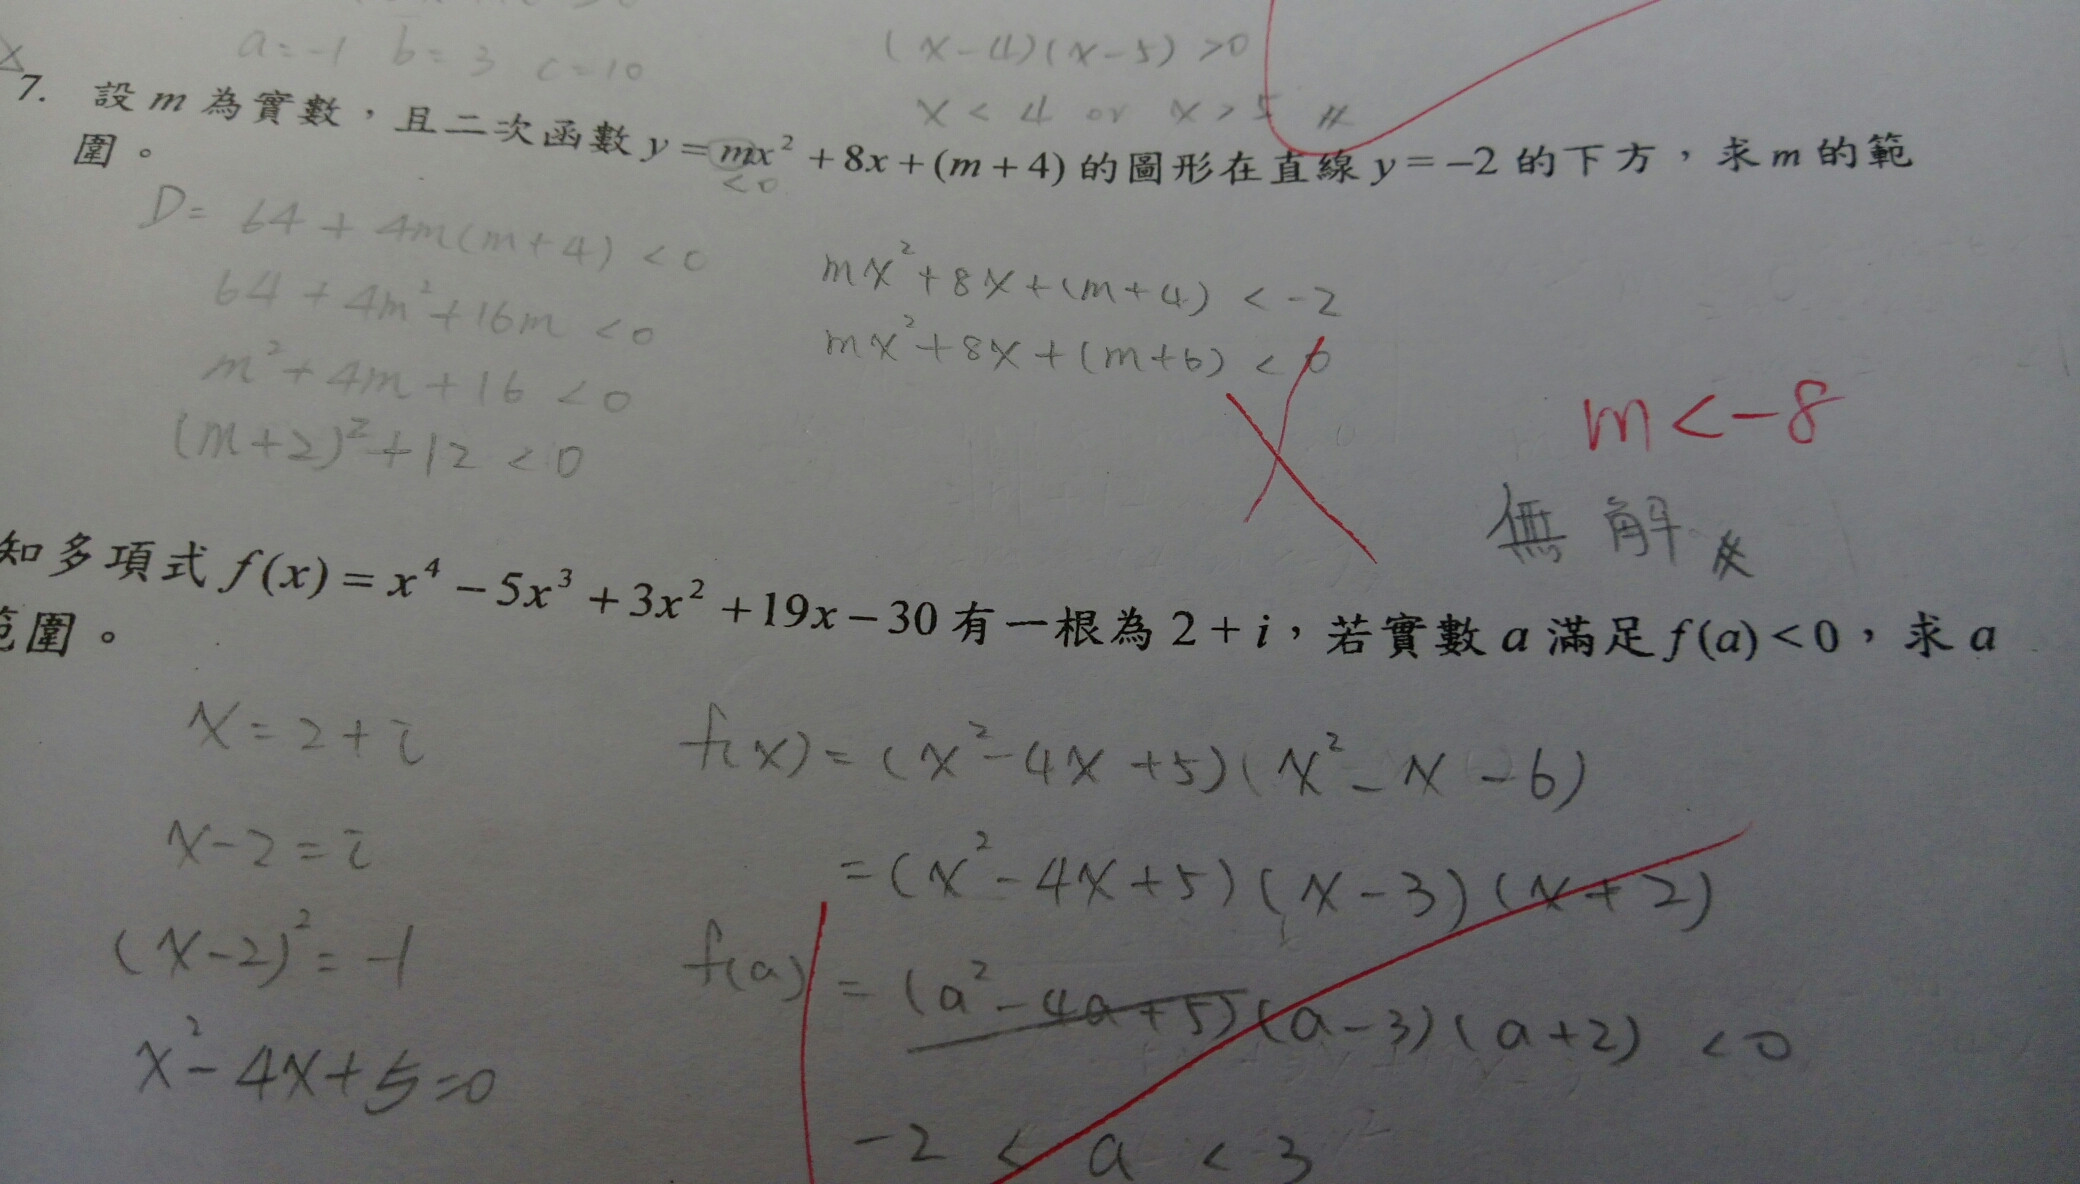 a=-1 b=3 c=10
(x-4)(x-5)>0
x<4 or x>5 #
7. 設 m 為實數，且二次函數 y=mx²+8x+(m+4) 的圖形在直線 y=-2 的下方，求 m 的範
<0
圍。
D= 64+4m(m+4)<0
64+4m²+16m<0
m²+4m+16<0
(m+2)²+12<0
mx²+8x+(m+4)<-2
mx²+8x+(m+6)<0
m<-8
無解 #
知多項式 f(x)=x⁴-5x³+3x²+19x-30 有一根為 2+i，若實數 a 滿足 f(a)<0，求 a
範圍。
x=2+i
x-2=i
(x-2)²=-1
x²-4x+5=0
f(x)=(x²-4x+5)(x²-x-6)
=(x²-4x+5)(x-3)(x+2)
f(a)=(a²-4a+5)(a-3)(a+2)<0
-2<a<3